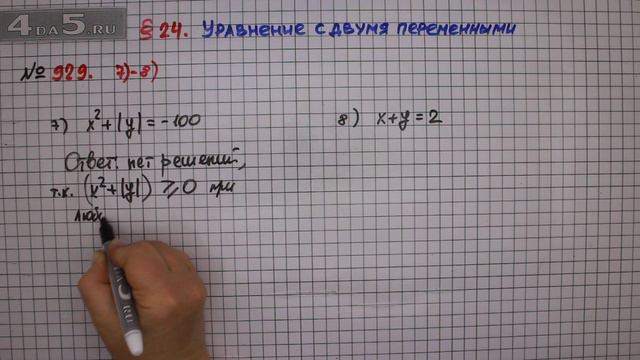 4DA5.RU
§ 24. Уравнение с двумя переменными
№ 929. 7)-8)
7) x²+|y|=-100
8) x+y=2
Ответ: нет решений,
т.к. (x²+|y|) ⩾0 при
любы
4DA5.RU